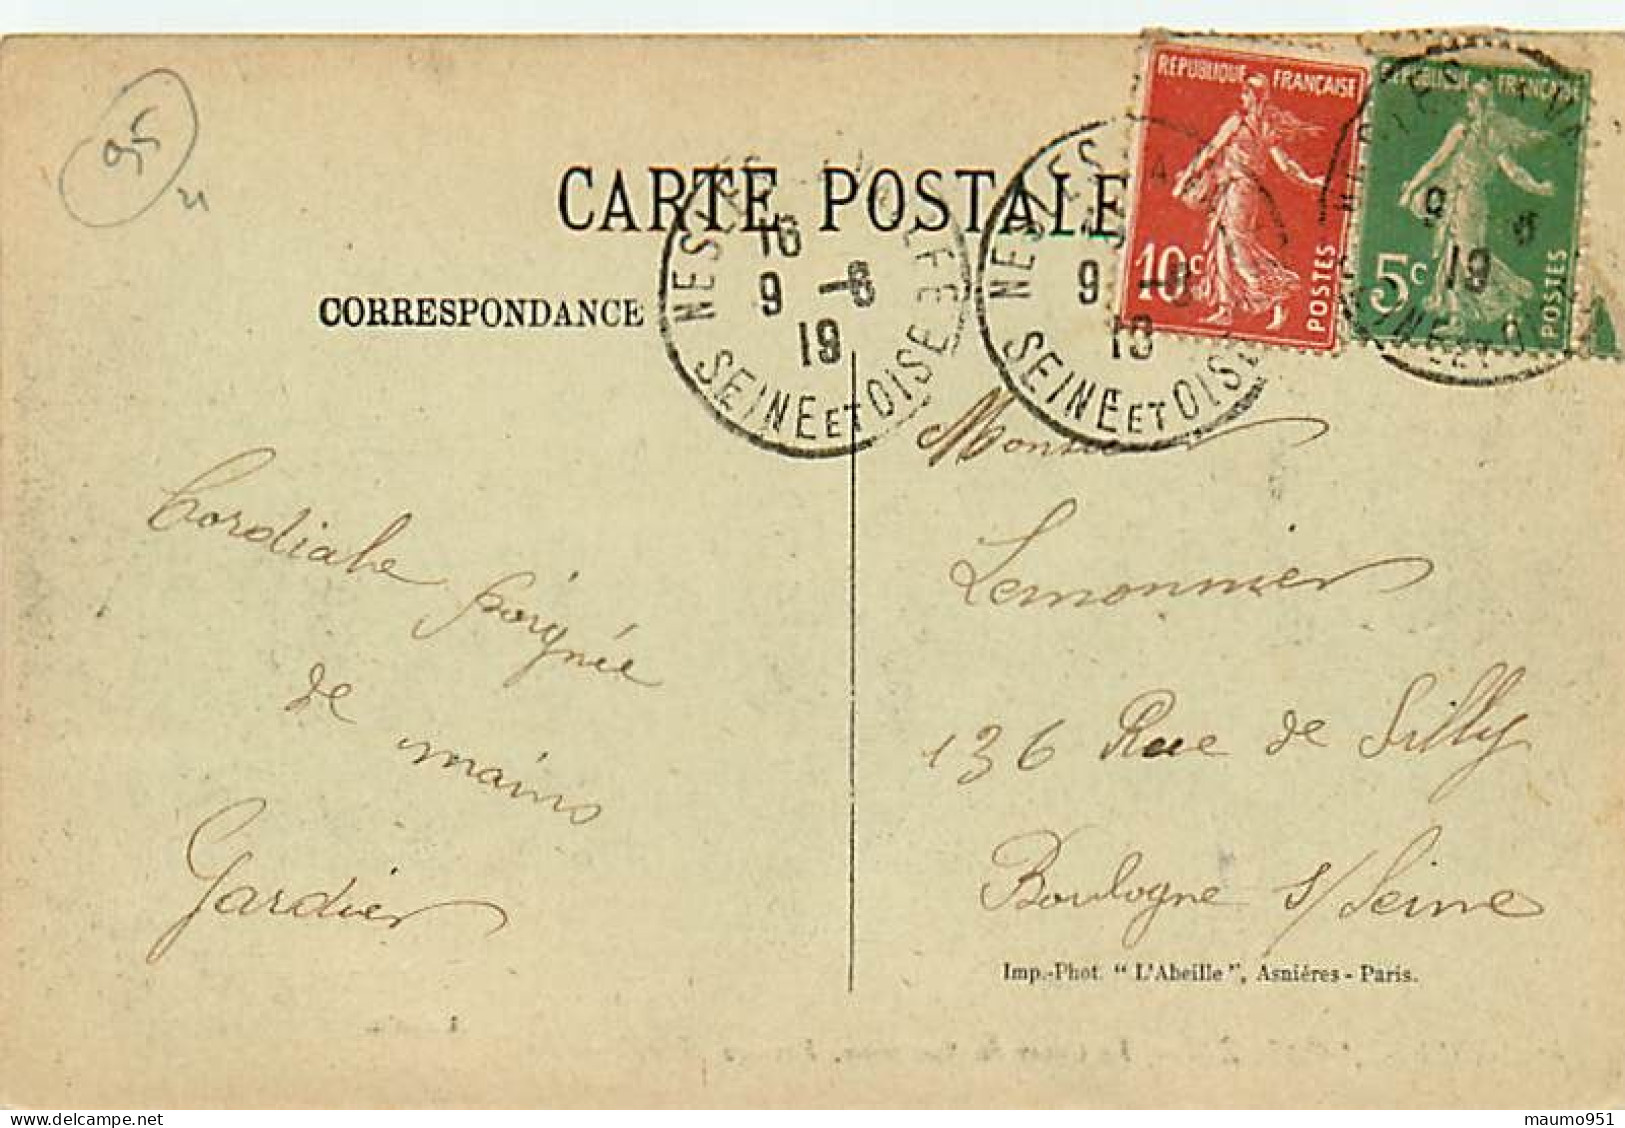 95
CARTE POSTALE
CORRESPONDANCE
REPUBLIQUE FRANÇAISE
10c
POSTES
REPUBLIQUE FRANÇAISE
5c
POSTES
NESLES
16
9 -8
19
SEINE ET OISE
NESLES
9 -8
19
SEINE ET OISE
9
19
Cordiale poignée
de
mains
Gardier
Monsieur
Lemonnier
136 Rue de Silly
Boulogne s/Seine
Imp.-Phot. "L'Abeille", Asnières - Paris.
maumo951